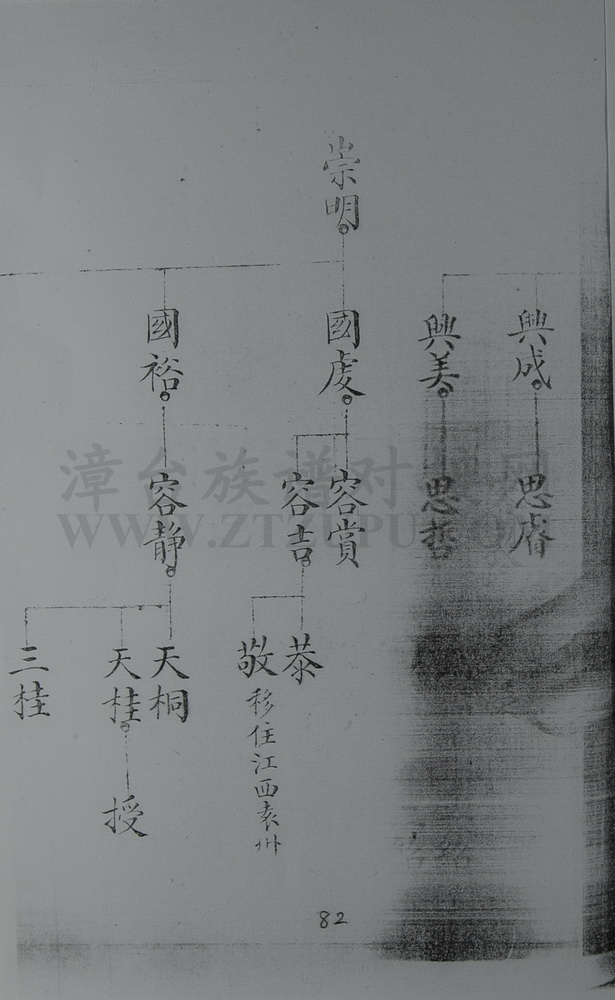 崇明
興成
興美
國虔
國裕
思睿
思哲
容賞
容吉
容靜
恭
敬
移住江西袁州
天桐
天桂
三桂
授
漳台族谱对接网
WWW.ZTZUPU.
82